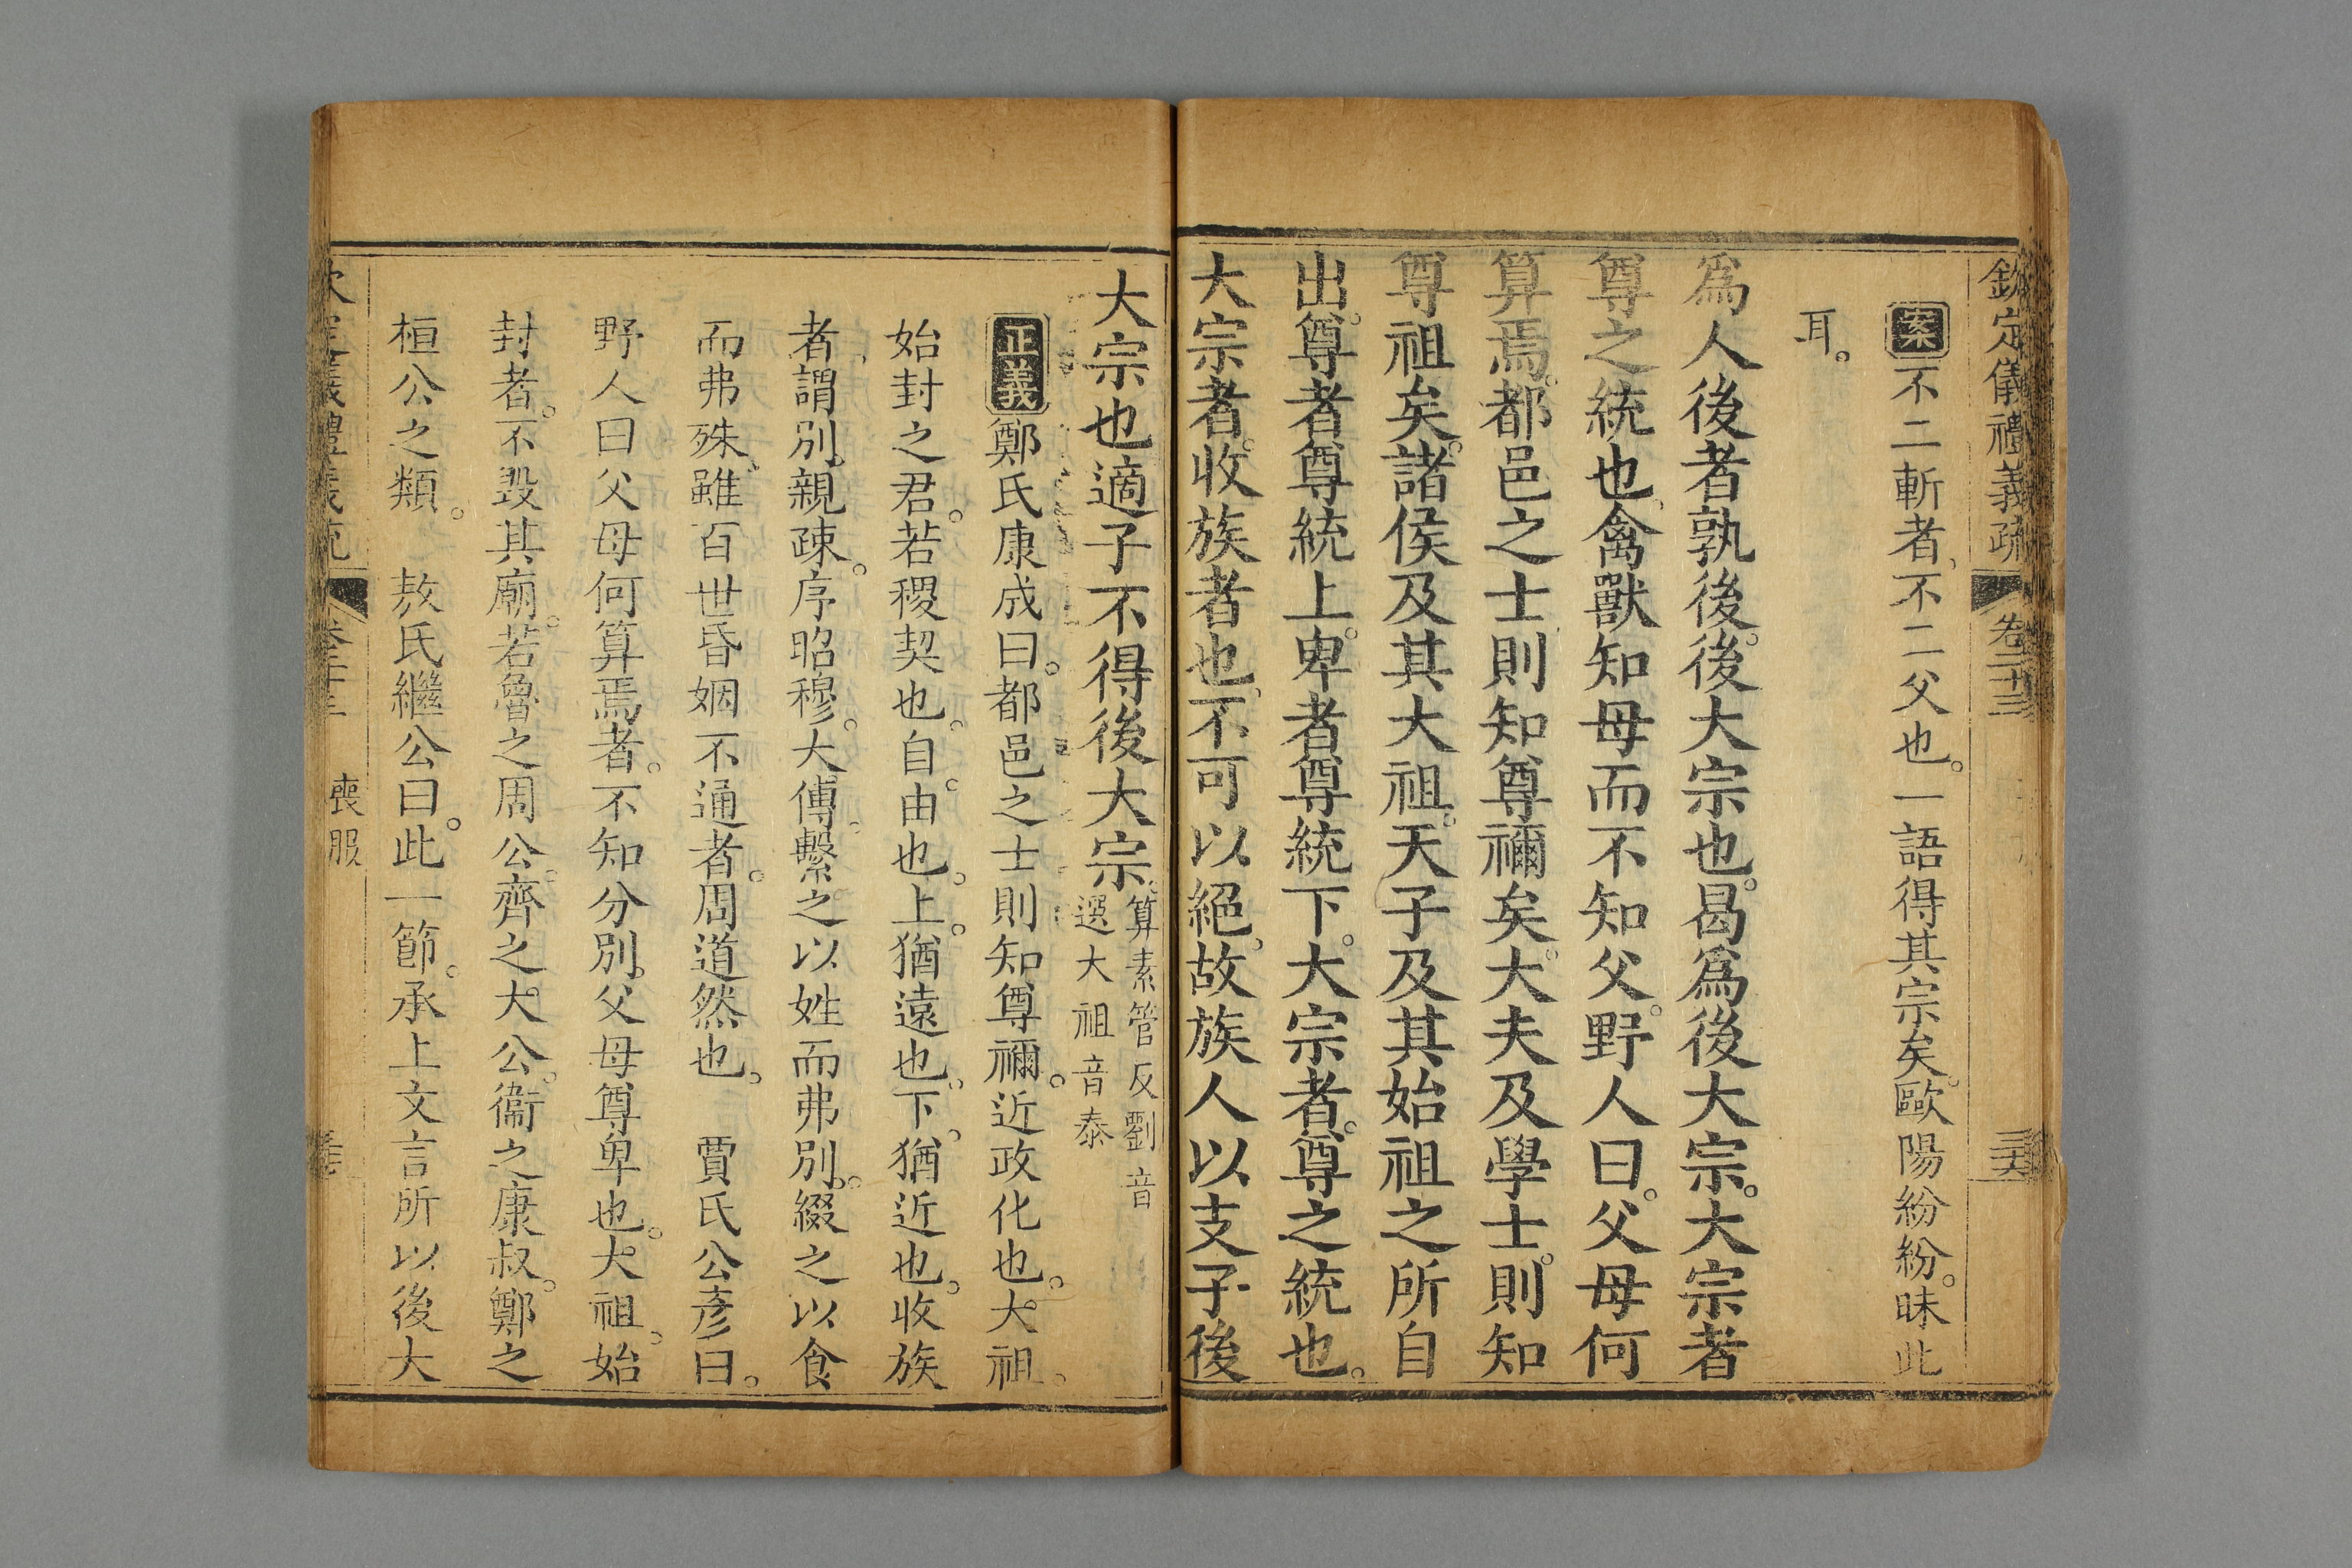 欽定儀禮義疏 卷二十三 三六
案不二斬者、不二父也。一語得其宗矣。歐陽紛紛。昧此
耳。
爲人後者孰後。後大宗也。曷爲後大宗。大宗者
尊之統也、禽獸知母而不知父。野人曰。父母何
算焉。都邑之士則知尊禰矣。大夫及學士。則知
尊祖矣。諸侯及其大祖。天子及其始祖之所自
出。尊者尊統上。卑者尊統下。大宗者。尊之統也。
大宗者。收族者也。不可以絕。故族人以支子後
大宗也適子不得後大宗。
算素管反劉音
選大祖音泰
正義鄭氏康成曰。都邑之士則知尊禰。近政化也。大祖。
始封之君。若稷契也。自。由也。上。猶遠也。下。猶近也。收族
者、謂別親疎。序昭穆。大傳。繫之以姓而弗別。綴之以食
而弗殊、雖百世昏姻不通者。周道然也。 賈氏公彥曰。
野人曰父母何算焉者。不知分別父母尊卑也。大祖。始
封者。不毀其廟。若魯之周公。齊之大公。衞之康叔。鄭之
桓公之類。 敖氏繼公曰。此一節。承上文言所以後大
喪服